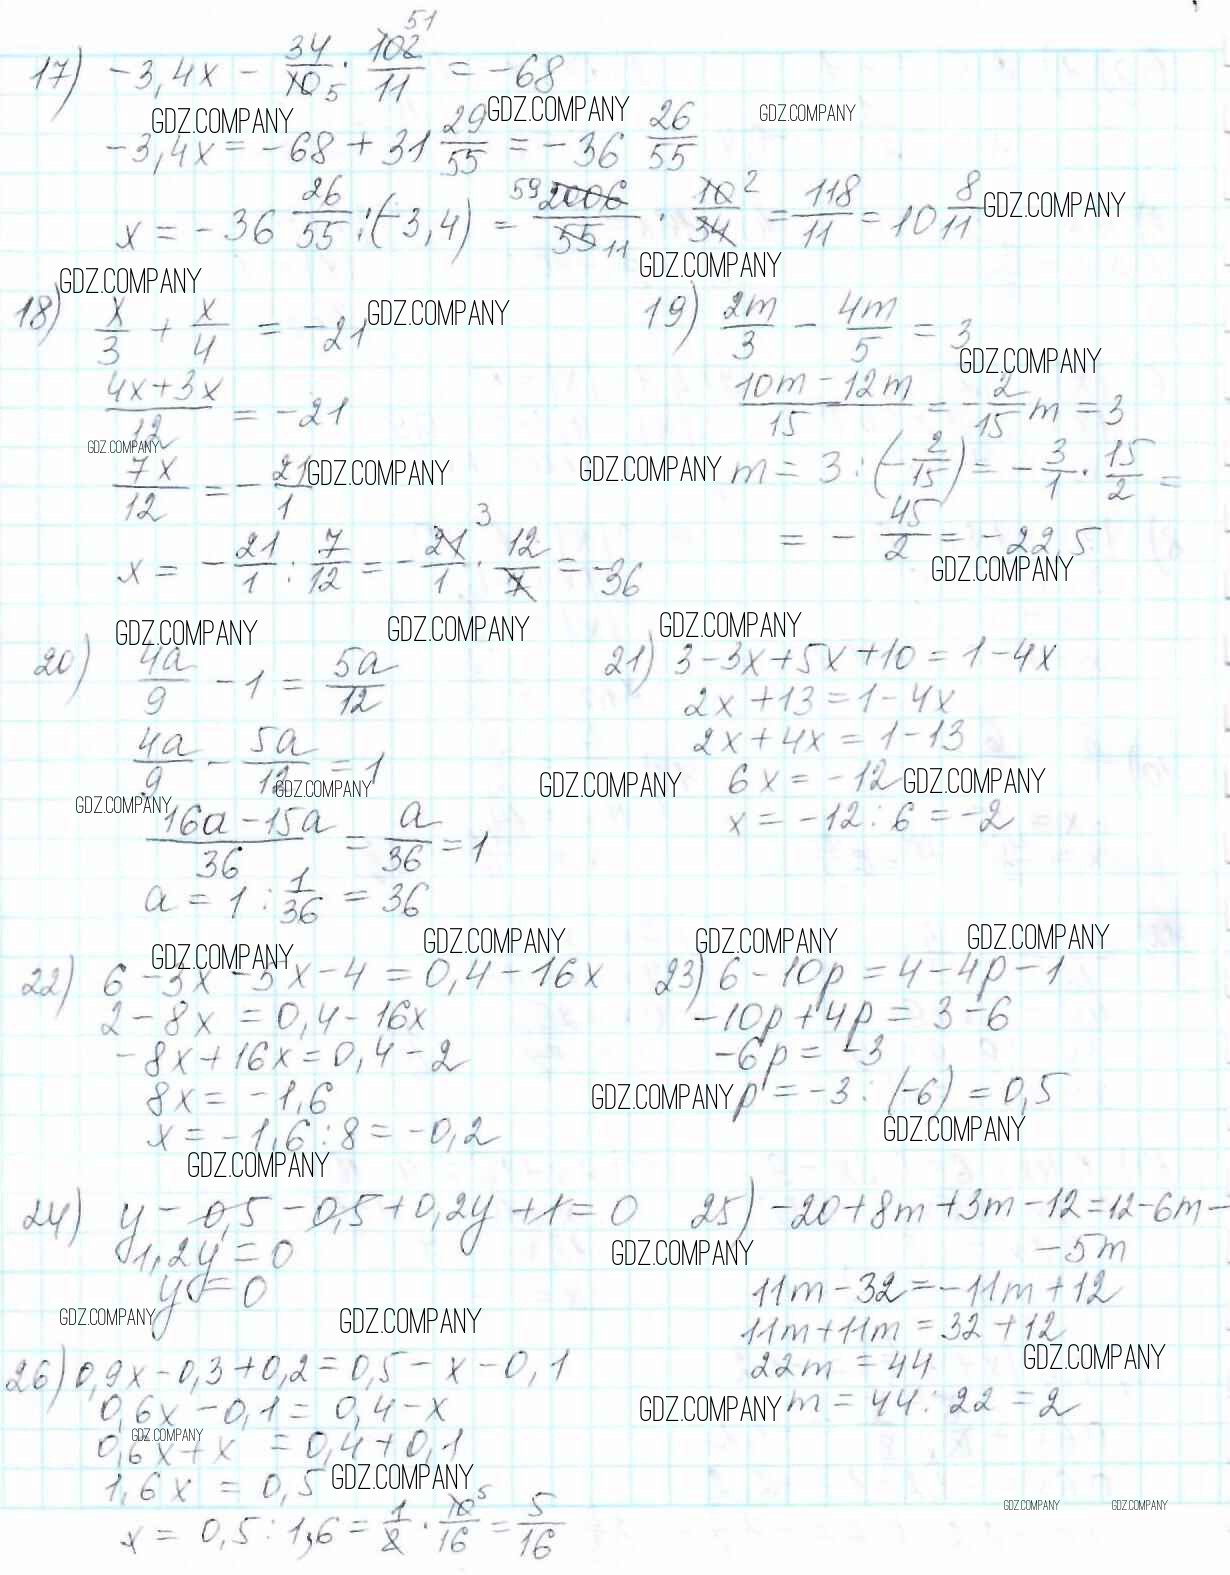 17) -3,4x - 34/10 5 · 102 51/11 = -68
GDZ.COMPANY GDZ.COMPANY GDZ.COMPANY
-3,4x = -68 + 31 29/55 = -36 26/55
x = -36 26/55 : (-3,4) = 59 2006/55 11 · 10 2/34 = 118/11 = 10 8/11 GDZ.COMPANY
GDZ.COMPANY GDZ.COMPANY
18) x/3 + x/4 = -21 GDZ.COMPANY
4x+3x/12 = -21
GDZ.COMPANY
7x/12 = -21/1 GDZ.COMPANY
x = -21/1 : 7/12 = -21 3/1 · 12/7 = -36
19) 2m/3 - 4m/5 = 3
GDZ.COMPANY
10m - 12m/15 = -2/15 m = 3
GDZ.COMPANY m = 3 : (-2/15) = -3/1 · 15/2 =
= -45/2 = -22,5
GDZ.COMPANY
GDZ.COMPANY GDZ.COMPANY GDZ.COMPANY
20) 4a/9 - 1 = 5a/12
4a/9 - 5a/12 = 1
GDZ.COMPANY GDZ.COMPANY
16a - 15a/36 = a/36 = 1
a = 1 : 1/36 = 36
21) 3-3x+5x+10 = 1-4x
2x+13 = 1-4x
2x+4x = 1-13
GDZ.COMPANY 6x = -12 GDZ.COMPANY
x = -12 : 6 = -2
GDZ.COMPANY GDZ.COMPANY GDZ.COMPANY GDZ.COMPANY
22) 6 - 3x - 5x - 4 = 0,4 - 16x
2 - 8x = 0,4 - 16x
-8x + 16x = 0,4 - 2
8x = -1,6
x = -1,6 : 8 = -0,2
GDZ.COMPANY
23) 6 - 10p = 4 - 4p - 1
-10p + 4p = 3 - 6
-6p = -3
GDZ.COMPANY p = -3 : (-6) = 0,5
GDZ.COMPANY
24) y - 0,5 - 0,5 + 0,2y + 1 = 0
1,2y = 0
y = 0
GDZ.COMPANY GDZ.COMPANY
25) -20+8m+3m-12=12-6m-
GDZ.COMPANY -5m
11m - 32 = -11m + 12
11m+11m = 32 + 12
22m = 44 GDZ.COMPANY
GDZ.COMPANY m = 44 : 22 = 2
26) 0,9x - 0,3 + 0,2 = 0,5 - x - 0,1
0,6x - 0,1 = 0,4 - x
GDZ.COMPANY
0,6x + x = 0,4 + 0,1
1,6x = 0,5 GDZ.COMPANY
x = 0,5 : 1,6 = 1/2 · 10 5/16 = 5/16
GDZ.COMPANY GDZ.COMPANY